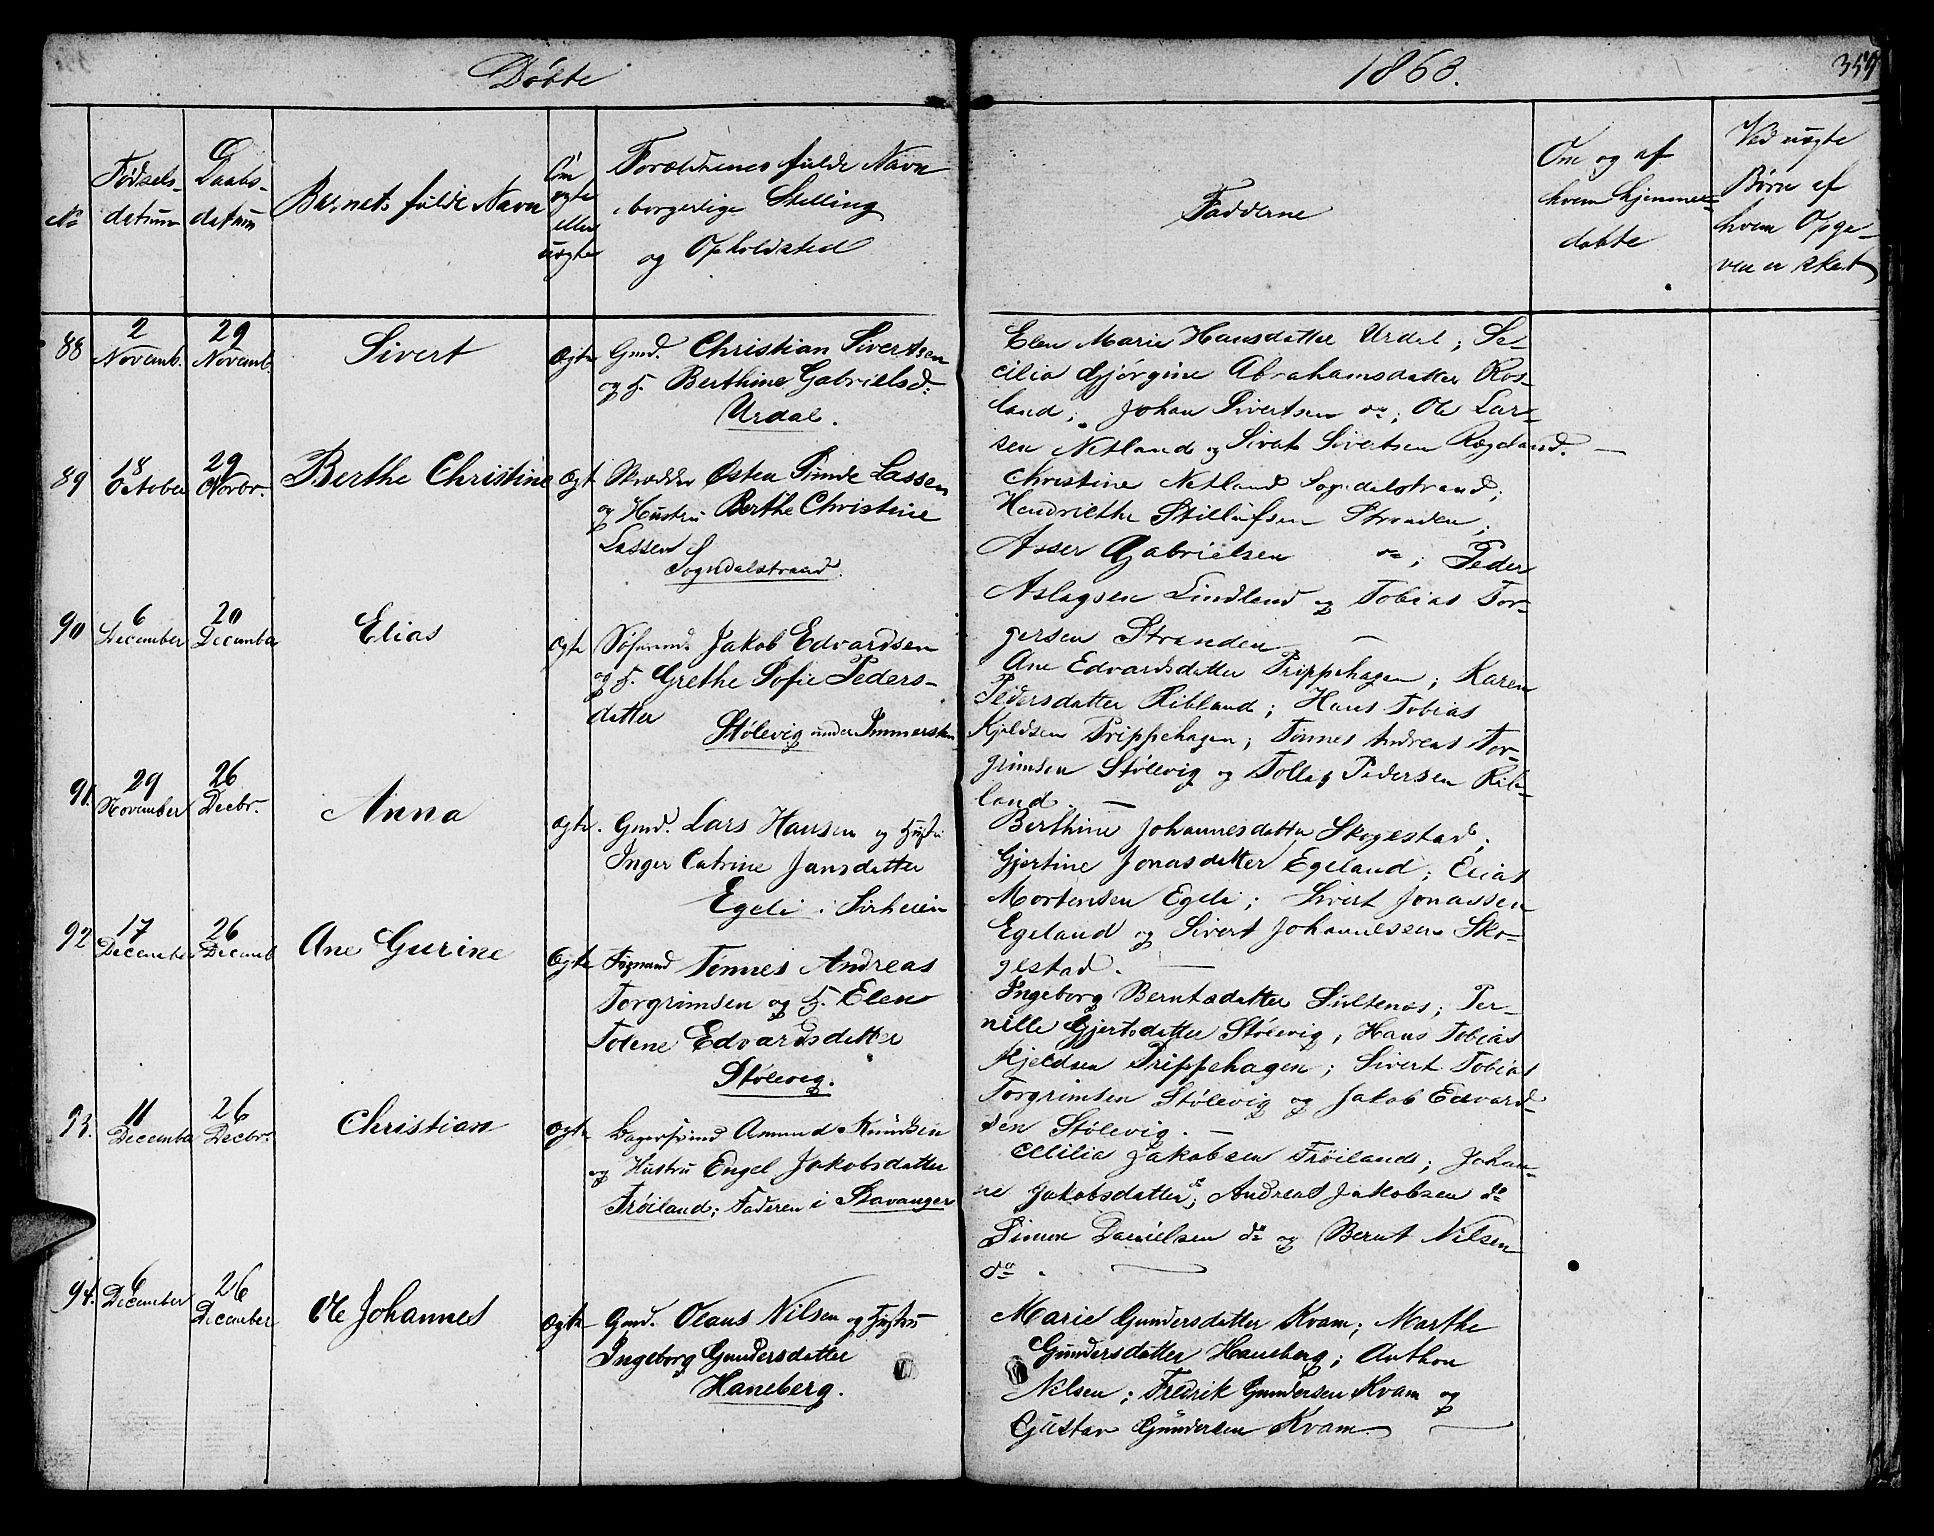 Døbte
1863.
359
No
Fødsels-
datum
Daabs-
datum
Barnets fulde Navn
Om
ægte
eller
uægte
Forældrenes fulde Navn
borgerlige Stilling
og Opholdsted
Fadderne
Om og af
hvem hjemme-
døbte
Ved uægte
Børn af
hvem Opga-
ven er skeet
88
2
Novemb.
29
Novemb.
Sivert
ægte
Gmd. Christian Sivertsen
og H. Berthine Gabrielsd:
Urdal.
Elen Marie Hansdatter Urdal; Se-
cilia Gjørgine Abrahamsdatter Ros-
land; Johan Sivertsen do; Ole Lar-
sen Netland og Sivert Sivertsen Rægeland.
89
18
October
29
Novbr.
Berthe Christine
ægt
Skrædder Østen Sunde Lassen
og Hustru Berthe Christine
Lassen
Sogndalstrand.
Christine Netland Sogndalstrand;
Hendriethe Stillufsen Stranden;
Asser Gabrielsen do; Peder
Aslagsen Lindland og Tobias Tor-
gersen Stranden
90
6
December
20
December
Elias
ægte
Søfarend. Jakob Edvardsen
og H. Grethe Sofie Peders-
datter
Stølevig under Immerstein
Ane Edvardsdatter Trippehagen; Karen
Pedersdatter Ribland; Hans Tobias
Kjeldsen Trippehagen; Tønnes Andreas Tor-
grimsen Stølevig og Tollef Pedersen Rib-
land.
91.
29
November
26
Decbr.
Anna
ægte.
Gmd. Lars Hansen og Hustru
Inger Catrine Jansdatter
Egeli i Sirheien
Berthine Johannesdatter Skogestad;
Gjertine Jonasdatter Egeland; Elias
Mortensen Egeli; Sivert Jonassen
Egeland og Sivert Johannessen Sko-
gestad.
92
17
December
26
Decemb
Ane Gurine
ægte
Tønnes Andreas
Torgrimsen og H. Elen
Tolene Edvardsdatter
Stølevig.
Ingeborg Berntsdatter Sultenes; Per-
nille Gjertsdatter Stølevig; Hans Tobias
Kjeldsen Trippehagen; Sivert Tobias
Torgrimsen Stølevig og Jakob Edvard-
sen Stølevig.
93.
11
December
26
Decbr.
Christian
ægte
Amund Knudsen
og Hustru Engel Jakobsdatter
Frøiland; Faderen i Stavanger
Cecilia Jakobsen Frøiland; Johan-
ne Jakobsdatter do; Andreas Jakobsen do
Simon Danielsen do og Bernt Nilsen
do.
94.
6
December
26
December
Ole Johannes
ægte
Gmd. Olaus Nilsen og Hustru
Ingeborg Gundersdatter
Haneberg.
Marie Gundersdatter Kvam; Marthe
Gundersdatter Haneberg; Anthon
Nilsen; Fredrik Gundersen Kvam og
Gustav Gundersen Kvam.